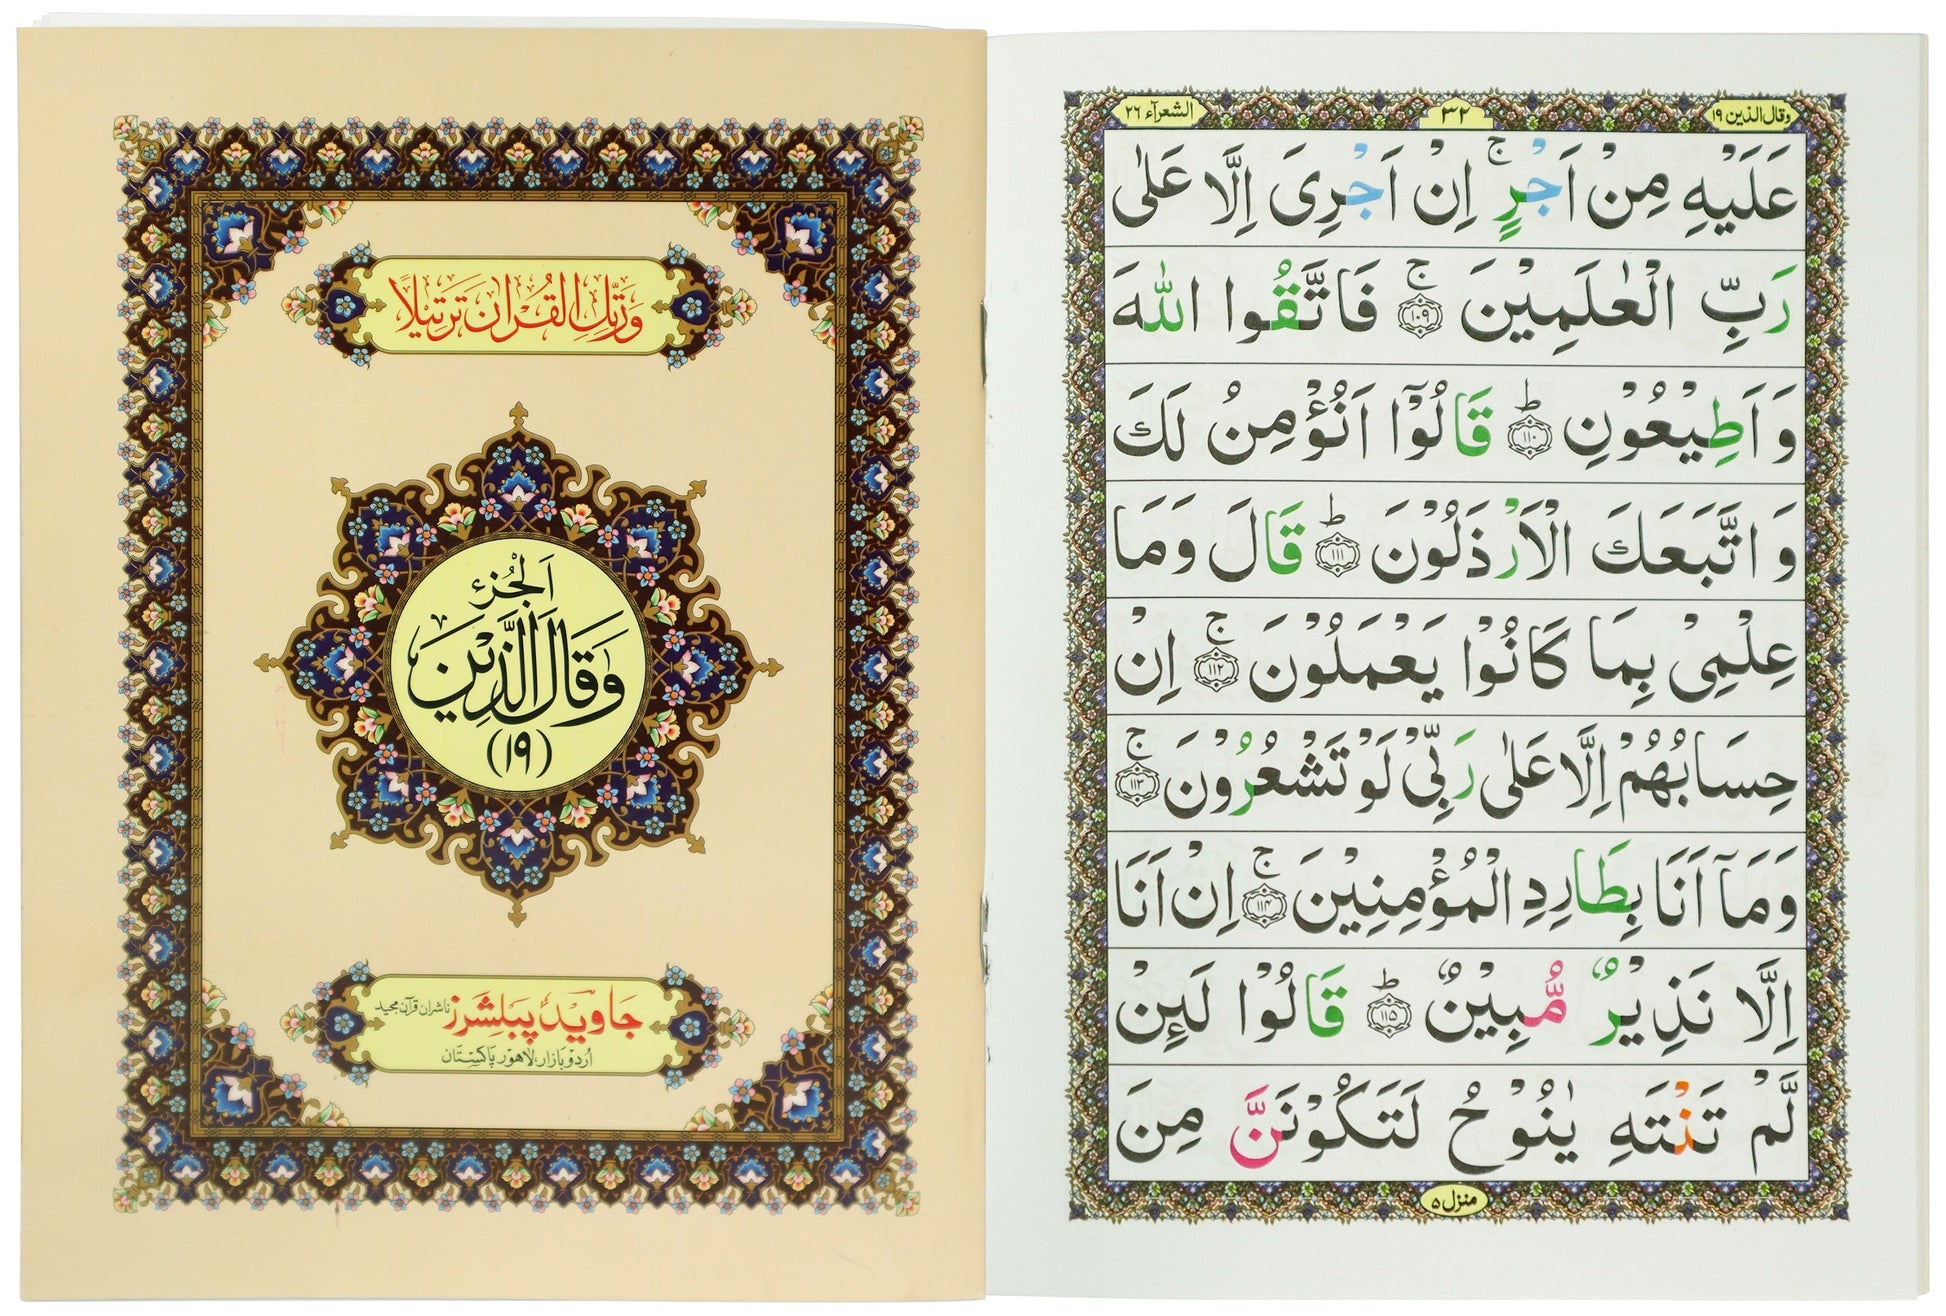 وَرَتِّلِ الْقُرْاٰنَ تَرْتِيْلًا
اَلْجُزْءُ
وَقَالَ الَّذِيْنَ
(۱۹)
جاوید پبلشرز ناشران قرآن مجید
اُردو بازار، لاهور پاکستان
وقال الذين ۱۹
۳۲
الشعرآء ۲۶
عَلَيْهِ مِنْ اَجْرٍ ۚ اِنْ اَجْرِىَ اِلَّا عَلٰى
رَبِّ الْعٰلَمِيْنَ ۚ ﴿۱۰۹﴾ فَاتَّقُوا اللّٰهَ
وَ اَطِيْعُوْنِ ؕ ﴿۱۱۰﴾ قَالُوْۤا اَنُؤْمِنُ لَكَ
وَ اتَّبَعَكَ الْاَرْذَلُوْنَ ؕ ﴿۱۱۱﴾ قَالَ وَمَا
عِلْمِىْ بِمَا كَانُوْا يَعْمَلُوْنَ ۚ ﴿۱۱۲﴾ اِنْ
حِسَابُهُمْ اِلَّا عَلٰى رَبِّىْ لَوْ تَشْعُرُوْنَ ۚ ﴿۱۱۳﴾
وَمَاۤ اَنَا بِطَارِدِ الْمُؤْمِنِيْنَ ۚ ﴿۱۱۴﴾ اِنْ اَنَا
اِلَّا نَذِيْرٌ مُّبِيْنٌ ؕ ﴿۱۱۵﴾ قَالُوْا لَئِنْ
لَّمْ تَنْتَهِ يٰنُوْحُ لَتَكُوْنَنَّ مِنَ
منزل ۵